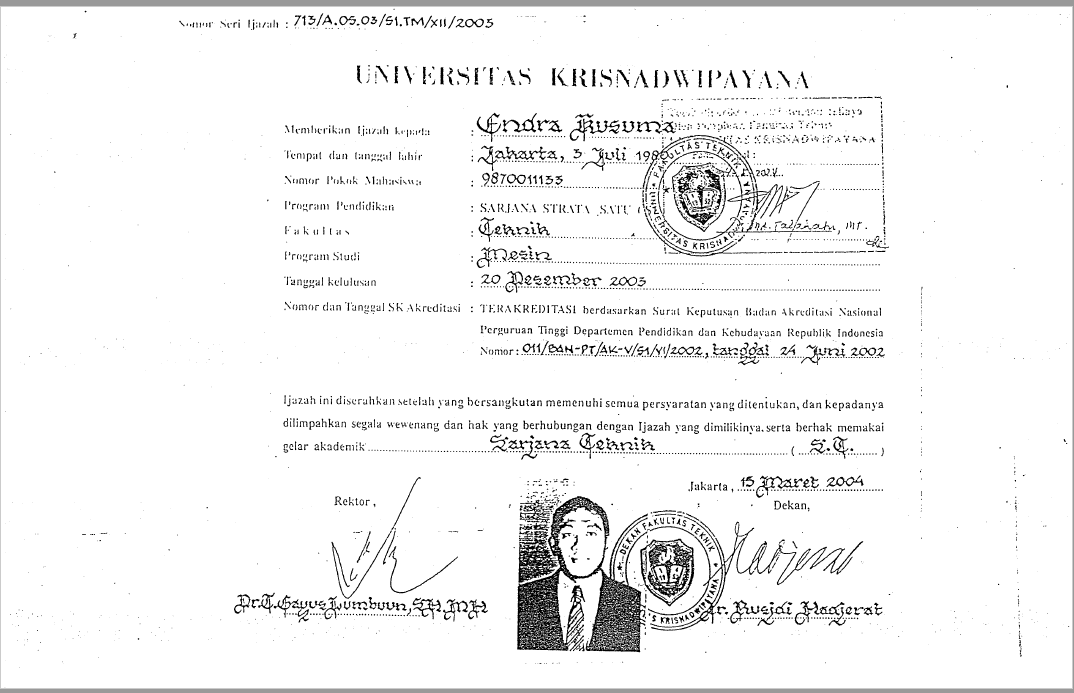 Nomor Seri Ijazah : 713/A.05.03/S1.TM/XII/2003
UNIVERSITAS KRISNADWIPAYANA
Memberikan Ijazah kepada : Endra Kusuma
Tempat dan tanggal lahir : Jakarta, 3 Juli 198
Nomor Pokok Mahasiswa : 9870011133
Program Pendidikan : SARJANA STRATA SATU (
Fakultas : Teknik
Program Studi : Mesin
Tanggal kelulusan : 20 Desember 2003
Nomor dan Tanggal SK Akreditasi : TERAKREDITASI berdasarkan Surat Keputusan Badan Akreditasi Nasional
Perguruan Tinggi Departemen Pendidikan dan Kebudayaan Republik Indonesia
Nomor : 011/BAN-PT/AK-V/S1/VI/2002, tanggal 24 Juni 2002
KRISNADWIPAYANA
FAKULTAS TEKNIK
UNIVERSITAS KRISNADWIPAYANA
Ijazah ini diserahkan setelah yang bersangkutan memenuhi semua persyaratan yang ditentukan, dan kepadanya
dilimpahkan segala wewenang dan hak yang berhubungan dengan Ijazah yang dimilikinya, serta berhak memakai
gelar akademik Sarjana Teknik ( S.T. )
Jakarta, 15 Maret 2004
Rektor,
Dekan,
DEKAN FAKULTAS TEKNIK
KRISNADWIPAYANA
Dr.T.Gayus Lumbuun, SH, MH
Ir. Rusjdi Hadjerat